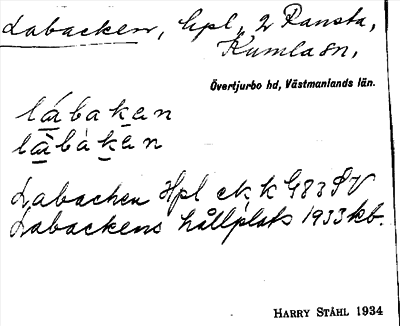 Labacken, hpl, 2 Ransta,
Kumla sn,
Övertjurbo hd, Västmanlands län.
lábakan
làbàkan
Labacken Hpl ek k G83 SV
Labackens hållplats 1933 kb.
HARRY STÅHL 1934